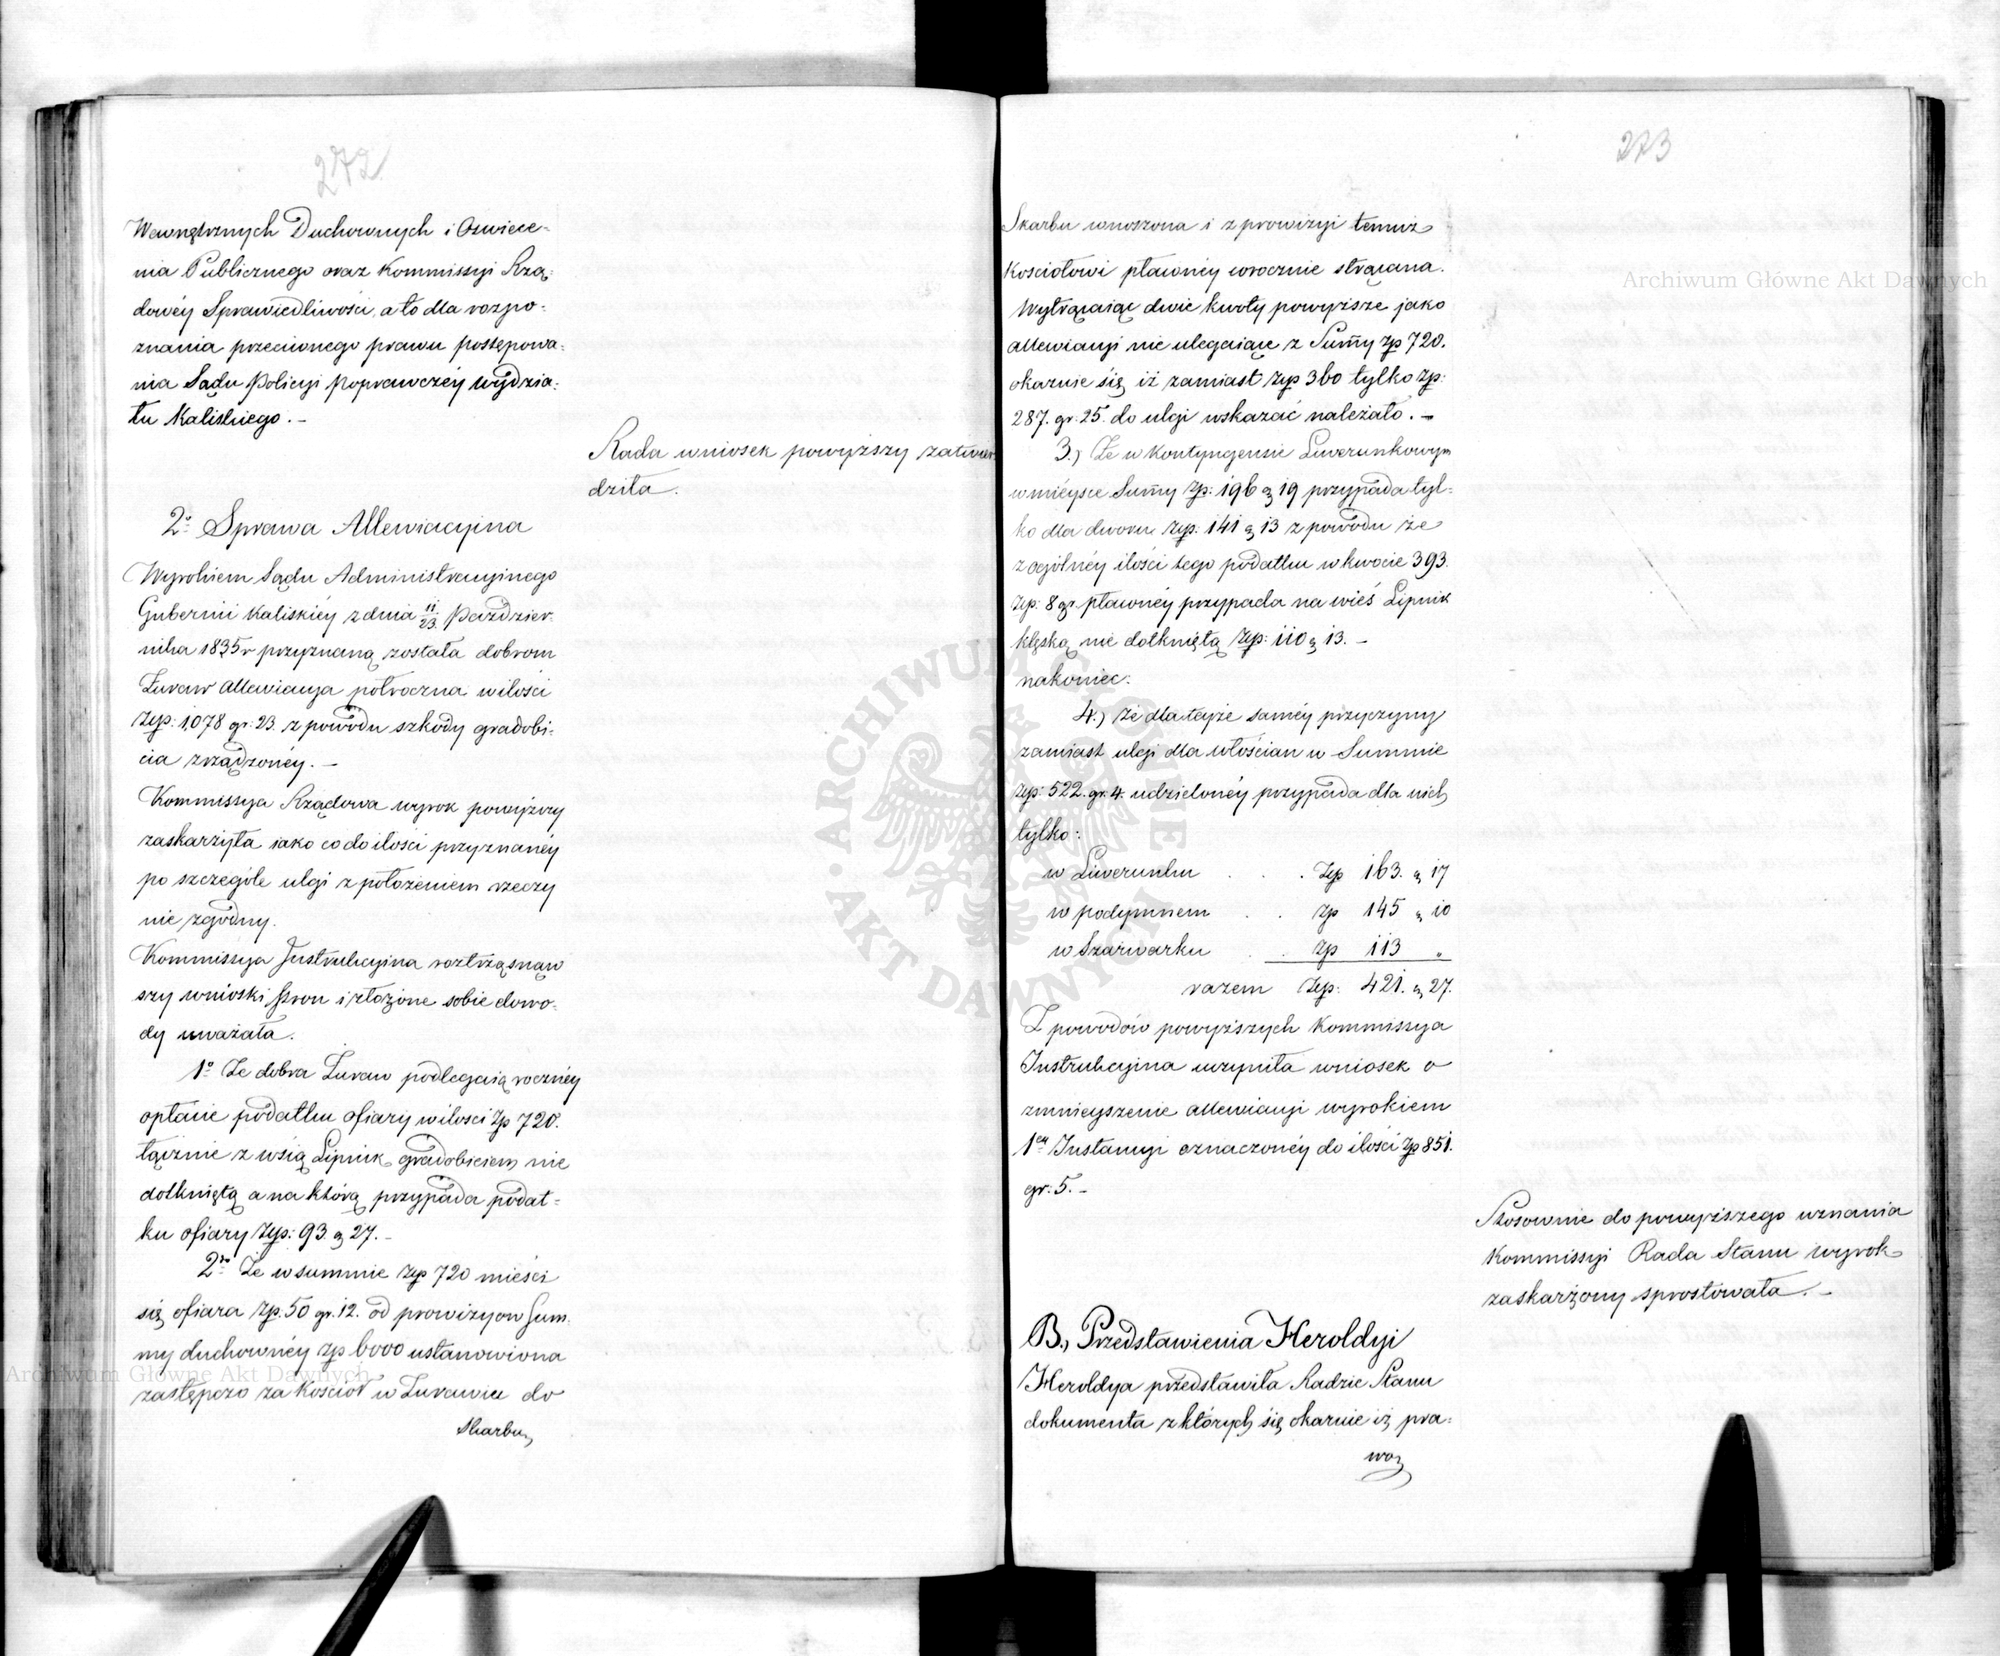 272
Wewnętrznych Duchownych i Oświece-
nia Publicznego oraz Kommissyi Rzą-
dowéy Sprawiedliwości, a to dla rozpo-
znania przeciwnego prawu postępowa-
nia Sądu Policyi Poprawczéy wydzia-
łu Kaliskiego. –
Rada wniosek powyższy zatwier-
dziła.
2o Sprawa Allewiacyjna
Wyrokiem Sądu Administracyinego
Gubernii Kaliskiéy z dnia 11/23 Paździer-
nika 1835 r przyznaną została dobrom
Żuraw allewiacya półroczna w ilości
Złp: 1,078 gr: 23. z powodu szkody gradobi-
cia zrządzonéy. –
Kommissya Rządowa wyrok powyższy
zaskarżyła jako co do ilości przyznanéy
po szczególe ulgi z położeniem rzeczy
nie zgodny.
Kommissya Instrukcyjna roztrząsnąw
szy wnioski stron i złożone sobie dowo-
dy uważała.
1o Że dobra Żuraw podlegaią rocznéy
opłacie podatku ofiary w ilości Zp 720.
łącznie z wsią Lipnik gradobiciem nie
dotkniętą a na którą przypada podat-
ku ofiary Złp: 93. g 27. –
2do Że w summie Złp 720 mieści
się ofiara Zp. 50 gr. 12. od prowizyow Sum-
my duchownéy Zp 6000 ustanowiona
zastępczo za Kościoł w Żurawiu do
Skarbu
273
Skarbu wnoszona i z prowizyi temuż
Kościołowi płatnéy corocznie strącana.
Wytrącaiąc dwie kwoty powyższe jako
allewiacyi nie ulegaiące z Summy Zp 720.
okazuie się iż zamiast Złp 360 tylko Zp:
287. gr. 25. do ulgi wskazać należało. –
3.) Że w Kontyngensie Liwerunkowym
w mieysce Summy Zp: 196 g 19 przypada tyl-
ko dla dworu Złp: 141 g 13 z powodu że
z ogólnéy ilości tego podatku w kwocie 393.
Złp: 8 gr. płatnéy przypada na wieś Lipnik
klęską nie dotkniętą Złp: 110 g 13. –
nakoniec:
4.) Że dla teyże saméy przyczyny
zamiast ulgi dla włościan w Summie
Złp: 522. gr. 4. udzielonéy przypada dla nich
tylko:
w Liwerunku . . . Złp 163. g 17
w podymnem . . Zp 145 g 10
w Szarwarku . . Zp 113 "
razem Złp: 421. g 27.
Z powodów powyższych Kommissya
Instrukcyjna uczyniła wniosek o
zmnieyszenie allewiacyi wyrokiem
1ey Instancyi oznaczonéy do ilości Zp 851.
gr: 5. –
Stosownie do powyższego uznania
Kommissyi Rada Stanu wyrok
zaskarżony sprostowała. –
B., Przedstawienia Heroldyi
Heroldya przedstawiła Radzie Stanu
dokumenta z których się okazuie iż pra-
wo
Archiwum Główne Akt Dawnych
Archiwum Główne Akt Dawnych
ARCHIWUM GŁÓWNE
AKT DAWNYCH